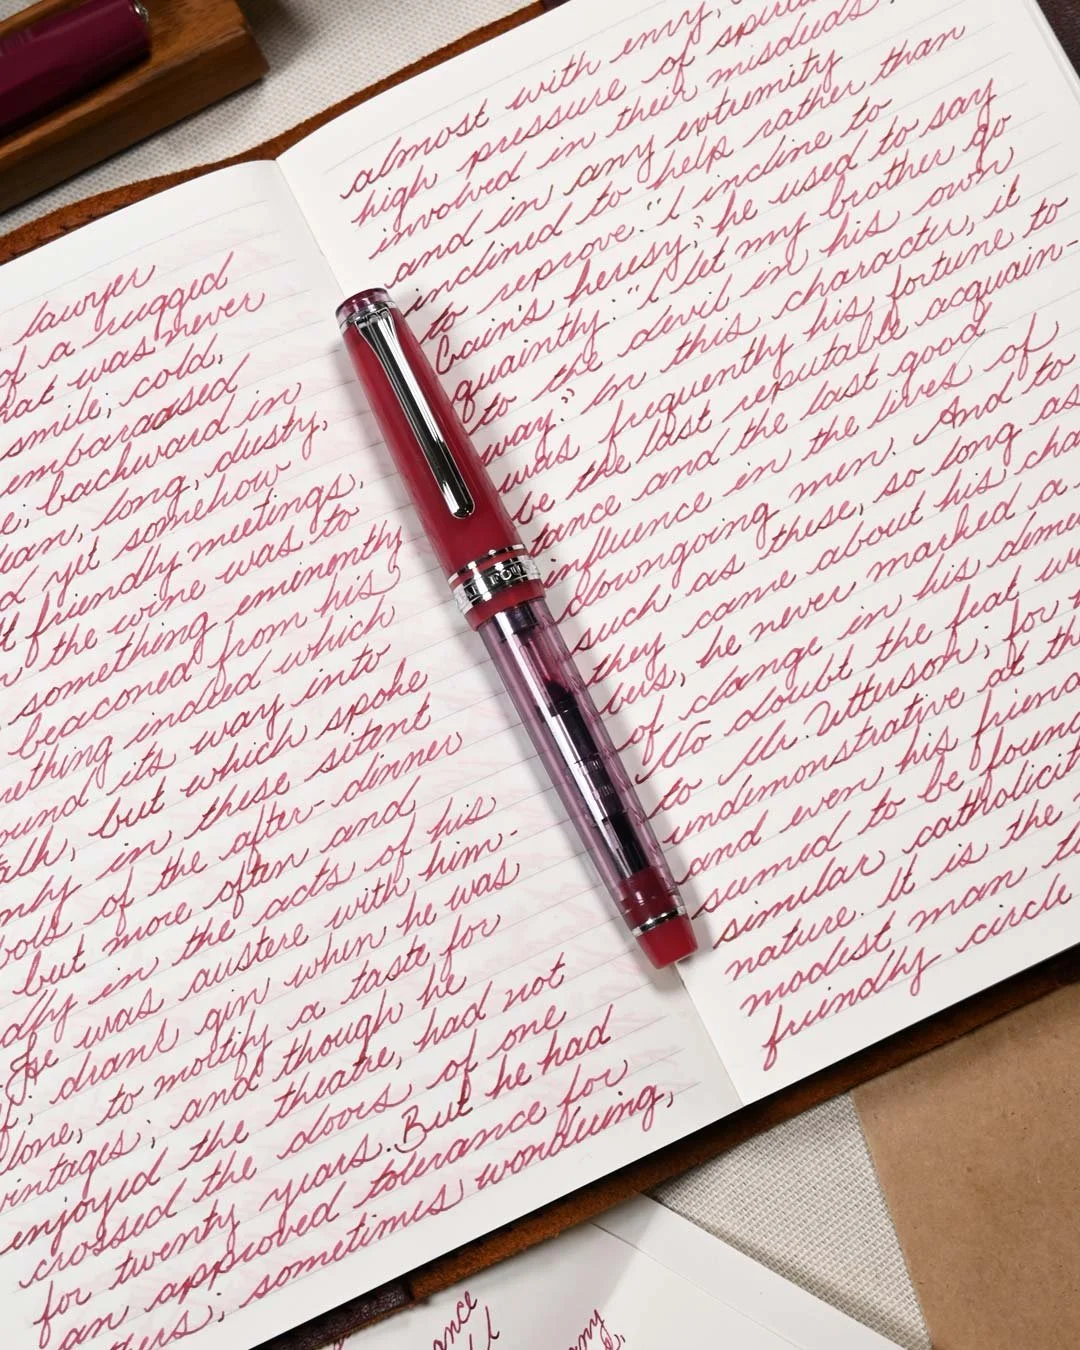 lawyer
of a rugged
that was never
smile; cold,
embarassed
backward in
lean, long, dusty,
yet somehow
friendly meetings,
the wine was to
something eminently
beaconed from his
something indeed which
found its way into
talk, but which spoke
only in these silent
symbols of the after-dinner
but more often and
loudly in the acts of his
He was austere with him-
drank gin when he was
alone, to mortify a taste for
vintages; and though he
enjoyed the theatre, had not
crossed the doors of one
for twenty years. But he had
an approved tolerance for
others; sometimes wondering,
almost with envy,
high pressure of spirits
involved in their misdeeds
and in any extremity
inclined to help rather than
to reprove. "I incline to
Cain's heresy," he used to say
quaintly: "I let my brother go
to the devil in his own
way." In this character, it
was frequently his fortune to
be the last reputable acquain-
tance and the last good
influence in the lives of
downgoing men. And to
such as these, so long as
they came about his
he never marked a
of change in his
No doubt the feat
to Mr. Utterson; for
undemonstrative at the
and even his
seemed to be
similar
nature. it is the
modest man
friendly circle
FOU